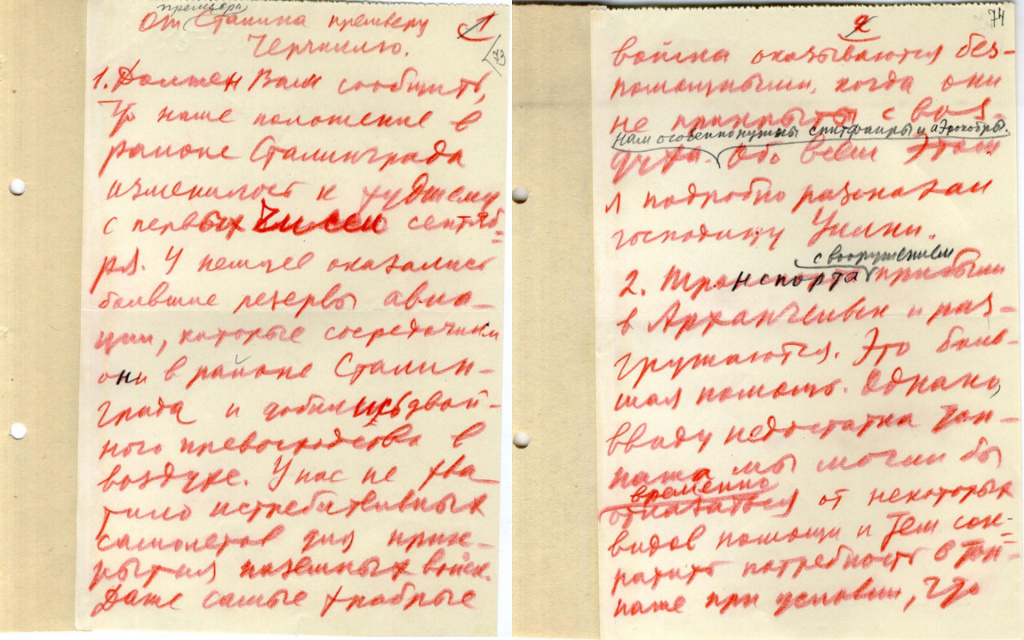 премьера
От Сталина премьеру
1
Черчиллю.
73
1. Должен Вам сообщить,
что наше положение в
районе Сталинграда
изменилось к худшему
с первых чисел сентяб-
ря. У немцев оказались
большие резервы авиа-
ции, которые сосредоточили
они в районе Сталин-
града и добились двой-
ного превосходства в
воздухе. У нас не хва
тило истребительных
самолетов для прик-
рытия наземных войск.
Даже самые храбрые
2
74
войска оказываются без-
помощными, когда они
не прикрыты с воз-
Нам особенно нужны спитфайры и аэрокобры.
духа. Обо всем этом
я подробно рассказал
господину Уилки.
с вооружением
2. Транспорта прибыли
в Архангельск и раз-
гружаются. Это боль-
шая помощь. Однако,
ввиду недостатка тон-
нажа мы могли бы
временно
отказаться от некоторых
видов помощи и тем сок-
ратить потребность в тон-
наже при условии, что